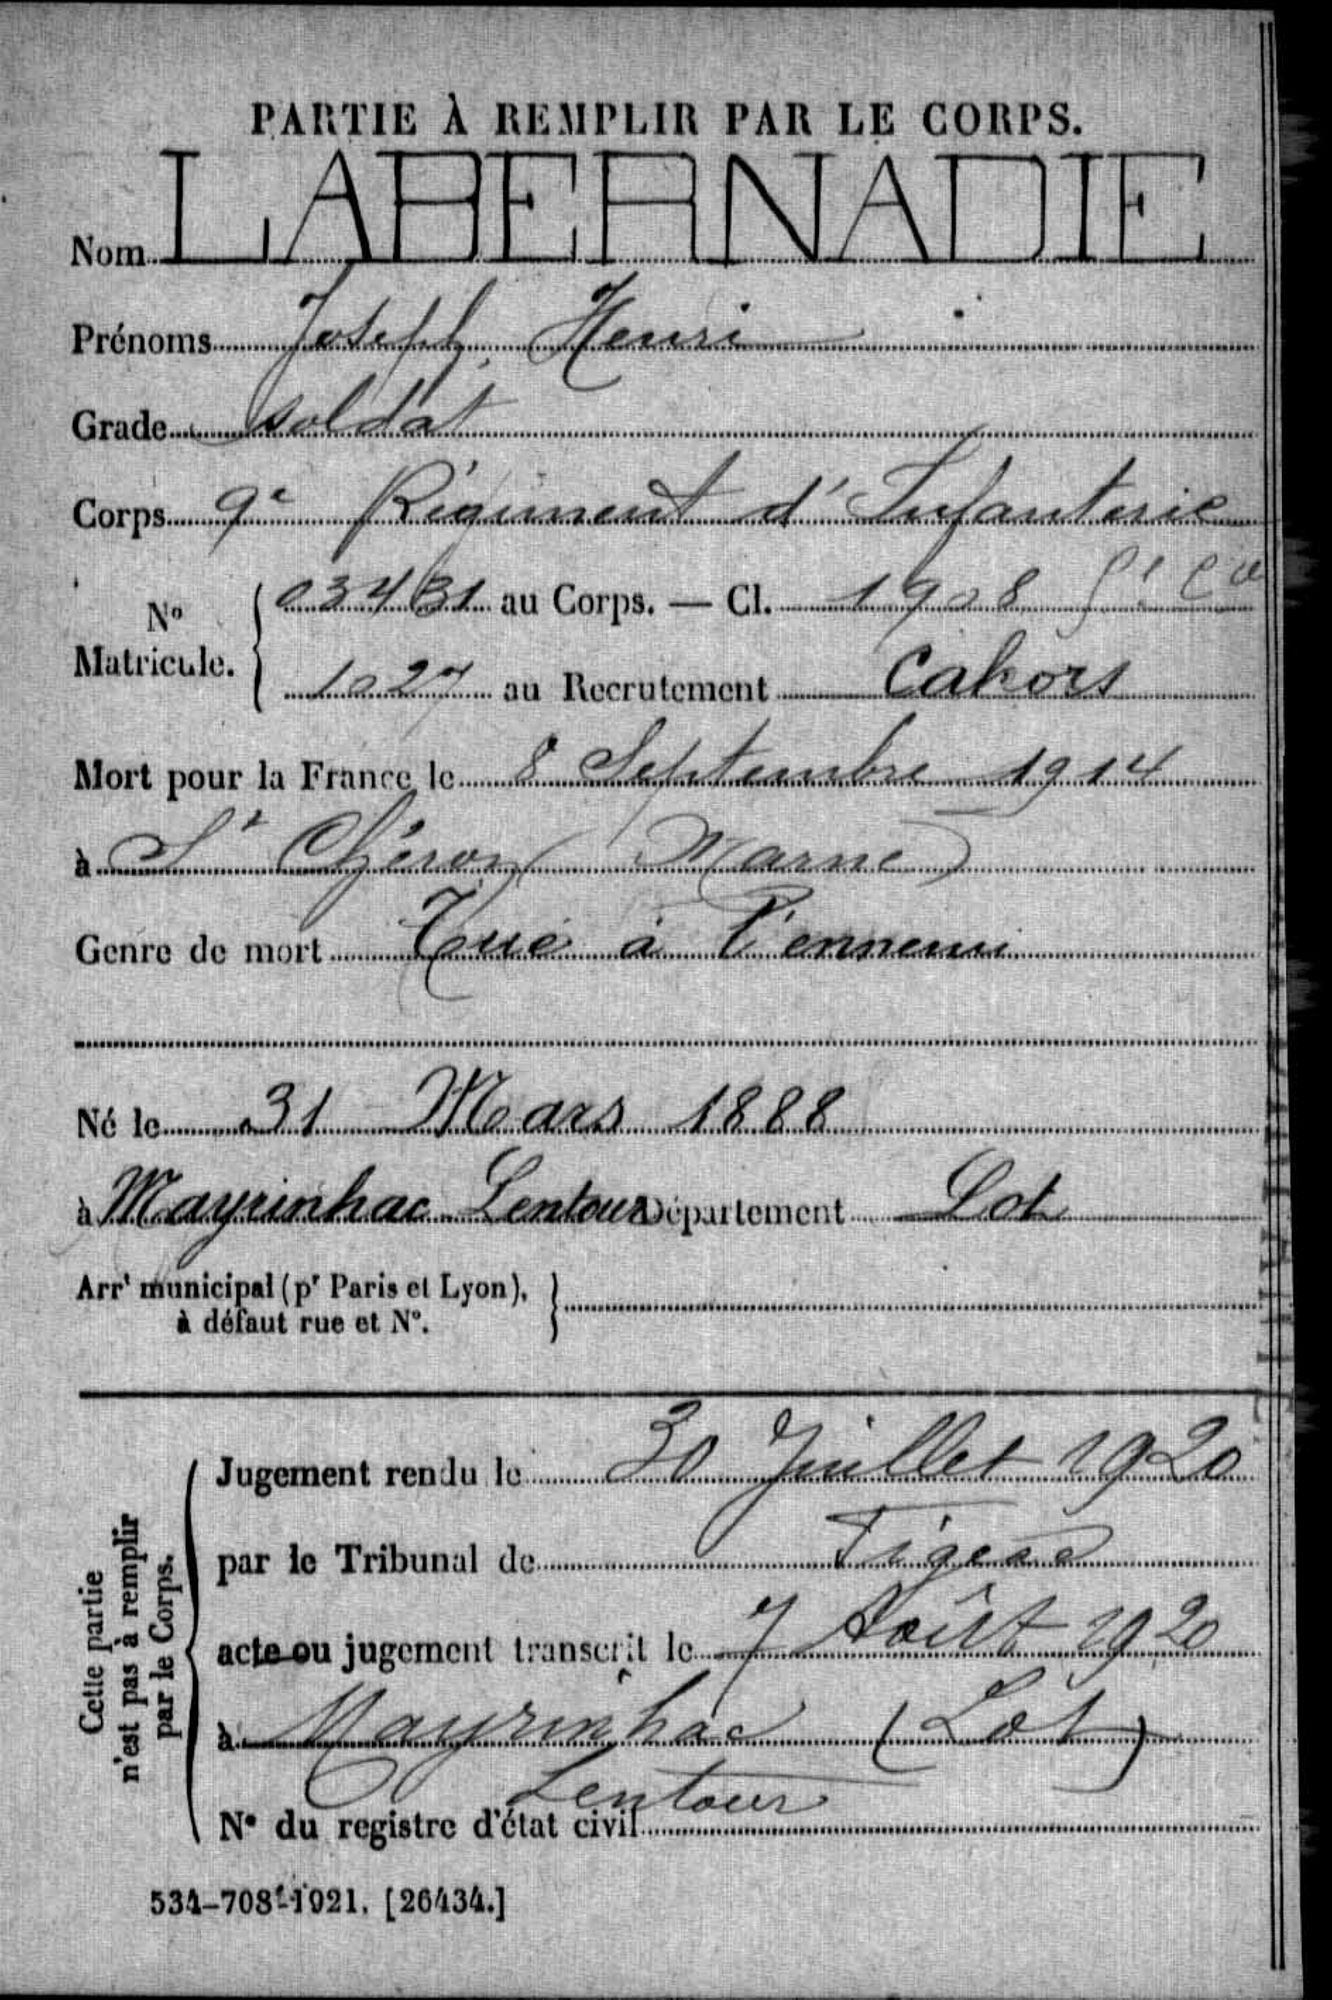 PARTIE À REMPLIR PAR LE CORPS.
Nom LABERNADIE
Prénoms Joseph, Henri
Grade soldat
Corps 9e Régiment d'Infanterie
No Matricule. { 03431 au Corps. — Cl. 1908
1027 au Recrutement Cahors
Mort pour la France le 8 Septembre 1914
à St Chéron (Marne)
Genre de mort Tué à l'ennemi
Né le 31 Mars 1888
à Mayrinhac Lentour Département Lot
Arrt municipal (pr Paris et Lyon), }
à défaut rue et No.
Cette partie
n'est pas à remplir
par le Corps.
Jugement rendu le 30 Juillet 1920
par le Tribunal de Figeac
acte ou jugement transcrit le 7 Août 1920
à Mayrinhac (Lot)
Lentour
No du registre d'état civil
534-708-1921. [26434.]